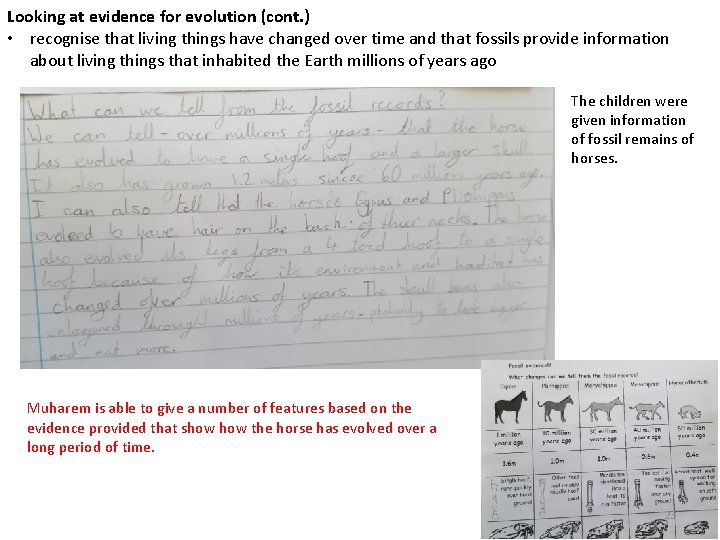 Looking at evidence for evolution (cont.)
• recognise that living things have changed over time and that fossils provide information
about living things that inhabited the Earth millions of years ago
The children were
given information
of fossil remains of
horses.
What can we tell from the fossil records?
We can tell - over millions of years - that the horse
has evolved to have a single hoof and a larger skull.
It also has grown 1.2 meters sincee 60 million years ago.
I can also tell that the horses Equus and Pliohippus
evoloed to have hair on the back of thier necks. The horse
also evolved its legs from a 4 toed hoof to a single
hoof because of how its environment and habitat has
changed over millions of years. The skull has also
enlargened throught millions of years. probably to look bigger
and eat more.
Muharem is able to give a number of features based on the
evidence provided that show how the horse has evolved over a
long period of time.
Fossil evidence!!!
What changes can we tell from the fossil records?
Equus Pliohippus Merychippus Mesohippus
1 million years ago 10 million years ago 30 million years ago 40 million years ago 60 million years ago
1.6m 1.0m 1.0m 0.6m 0.4m
Single hoof, runs quickly over hard ground
Other toes lost or only middle hoof used
Middle toe developed into a hoof to run faster
Toe lost for moving faster over dry ground
spread for walking on soft ground